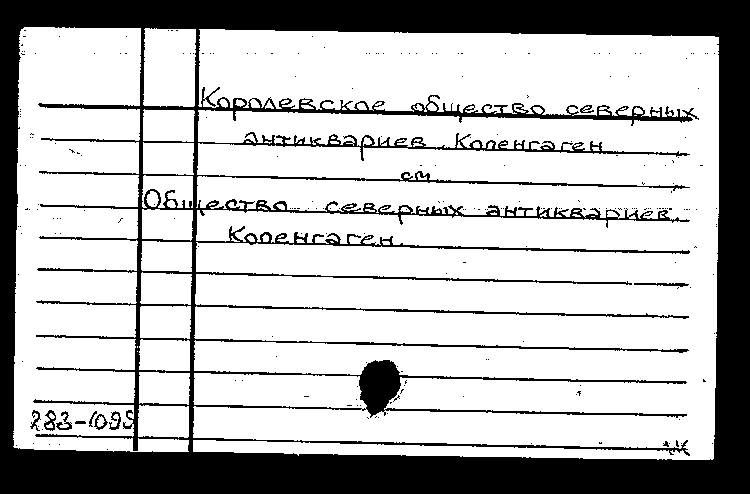 Королевское общество северных
антиквариев. Копенгаген
см
Общество северных антиквариев.
Копенгаген.
283-1099